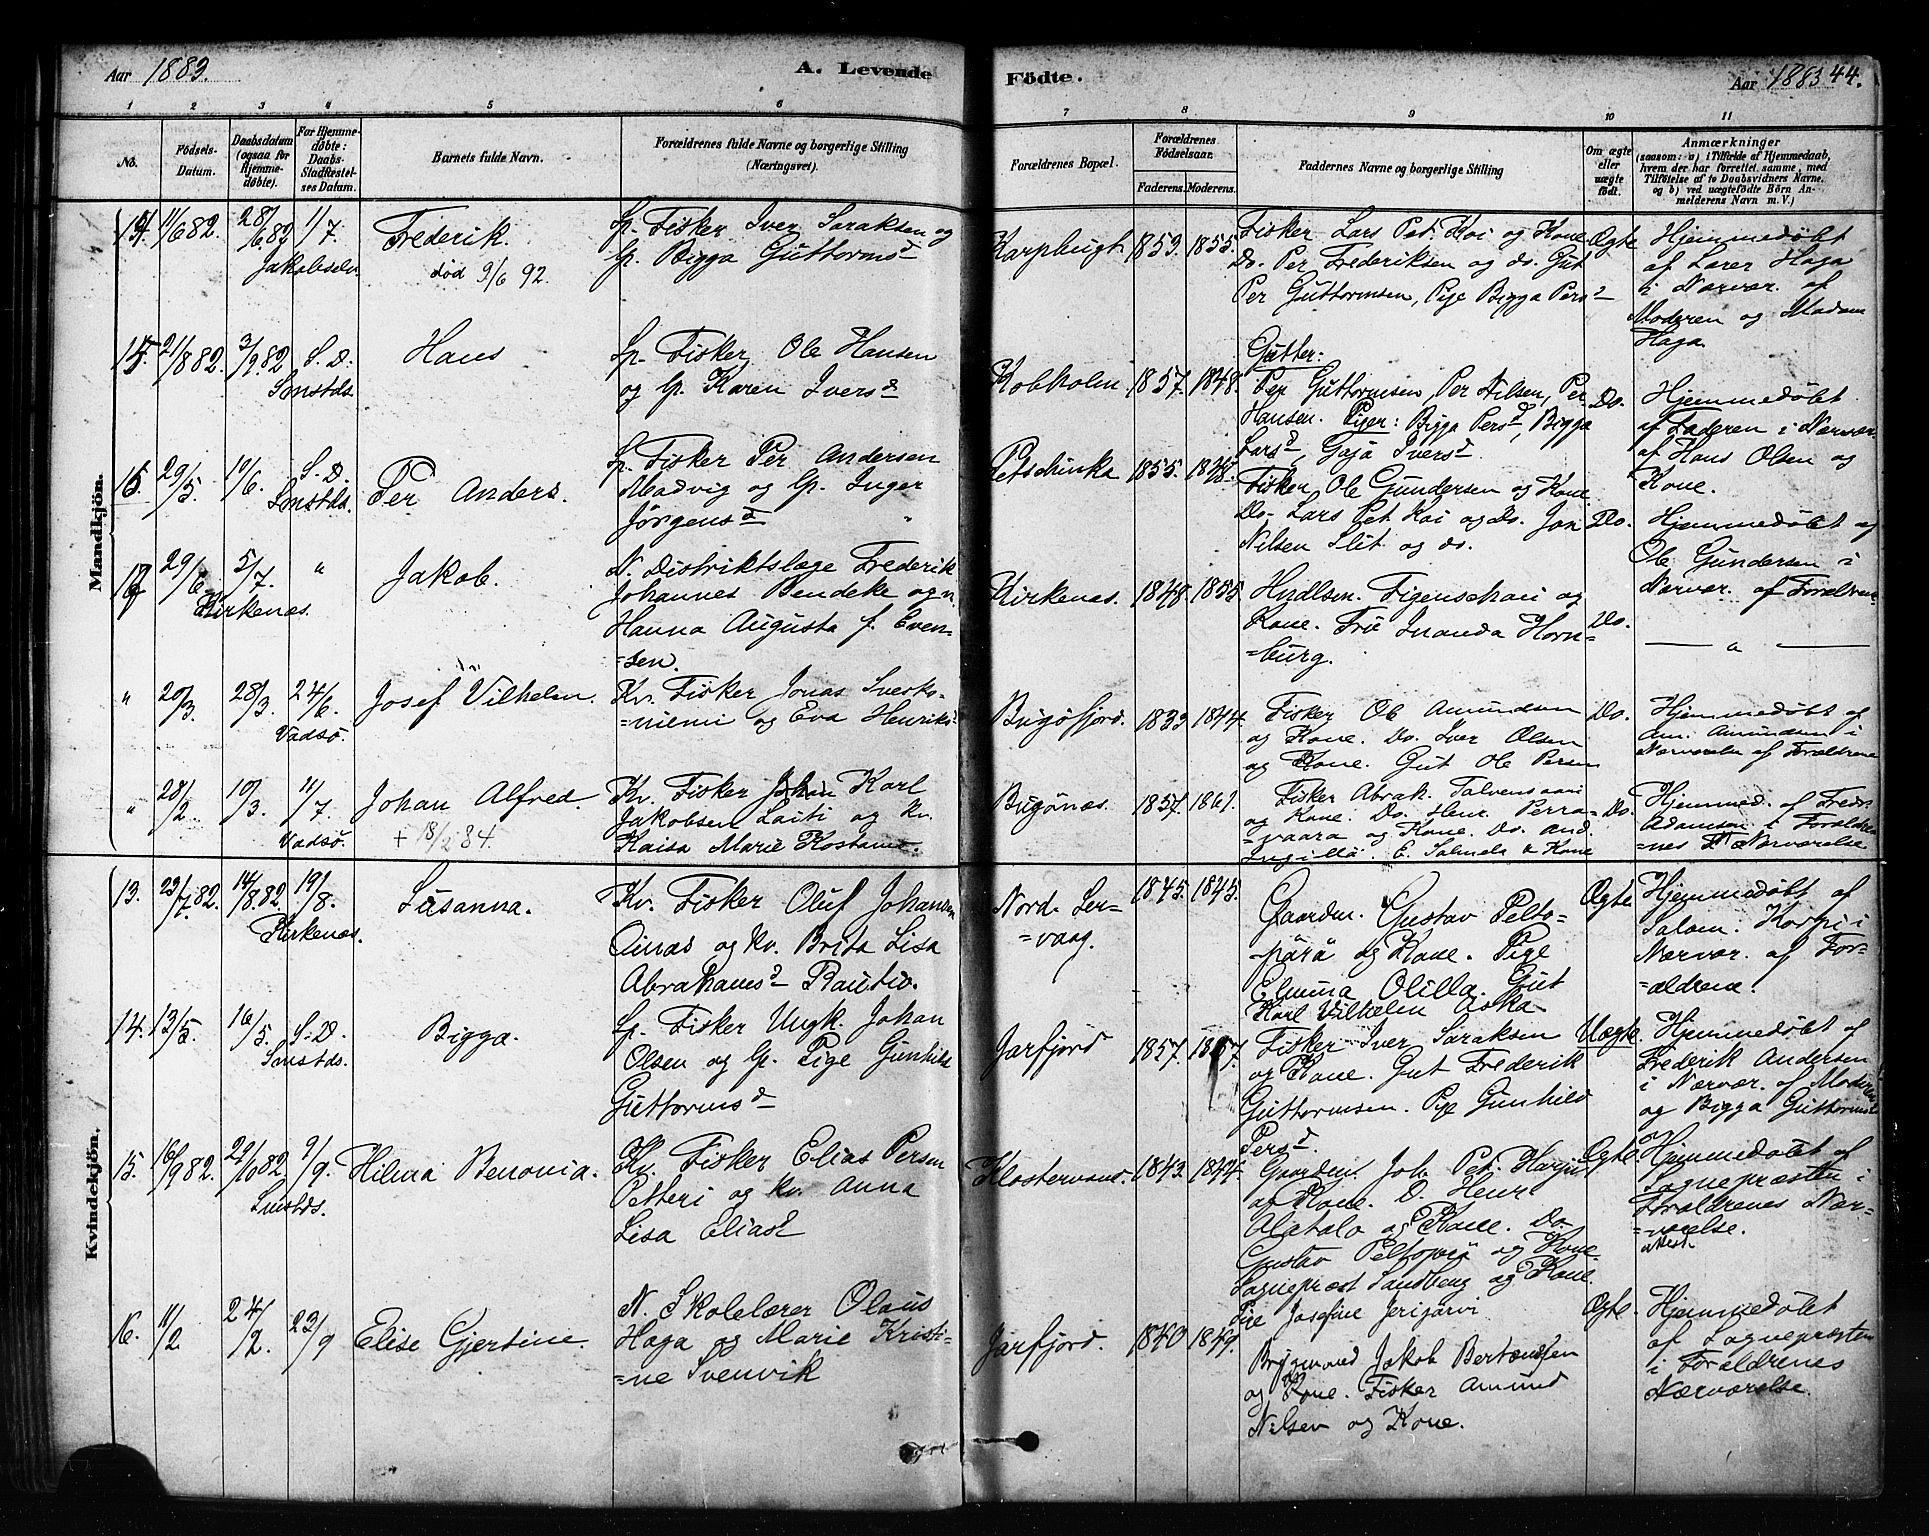 Aar 1883.
A. Levende
Födte.
Aar 1883 44.
1 2 3 4 5 6
7 8 9 10 11
No.
Födsels-
Datum.
Daabsdatum
(ogsaa for
Hjemme-
døbte).
For Hjemme-
døbte:
Daabs-
Stadfæstel-
ses Datum.
Barnets fulde Navn.
Forældrenes fulde Navne og borgerlige Stilling
(Næringsvei).
Forældrenes Bopæl.
Forældrenes
Födselsaar.
Faderens. Moderens.
Faddernes Navne og borgerlige Stilling
Om ægte
eller
uægte
födt.
Anmærkninger
(saasom: a) i Tilfælde af Hjemmedaab,
hvem der har forrettet samme, med
Tilföielse af to Daabsvidners Navne,
og b) ved uægtefödte Börn An-
melderens Navn m. V.)
Mandkjön.
14. 11/6 82. 28/6 82 1/7
Jakobselv.
Frederik.
død 9/6 92.
Lp. Fisker Iver Saraksen og
lp. Bigga Guttormsd
Karpbugt. 1853. 1855.
Fisker Lars Pet. Koi og Kone
Do. Per Frederiksen og do. Gut
Per Guttormsen, Pige Bigga Persd
Ægte
Hjemmedøbt
af Lærer Haga
i Nærvær. af
Moderen og Madam
Haga.
15. 21/8 82. 3/9 82 S. D.
Smstds.
Hans
Lp. Fisker Ole Hansen
og lp. Karen Iversd
Kobholm 1857. 1848.
Gutter:
Per Guttormsen, Per Nilsen, Per
Hansen. Piger: Bigga Persd, Bigga
Larsd, Gaja Iversd
Do.
Hjemmedøbt
af Faderen i Nærvær
af Hans Olsen og
Kone.
16. 29/5. 10/6. S. D.
Smstds.
Per Anders.
Lp. Fisker Per Andersen
Madvig og lp. Inger
Jørgensd
Petschinka 1855. 1848.
Fisker Ole Gundersen og Kone
Do. Lars Pet. Koi og do. Jon
Nilsen Slit og do.
Do.
Hjemmedøbt af
Ole Gundersen i
Nærvær. af Forældren
17. 29/6. 5/7. "
Kirkenæs.
Jakob.
N. Distriktslæge Frederik
Johannes Bendeke og n.
Hanna Augusta f. Even-
=sen.
Kirkenæs. 1848. 1855.
Hndlsm. Figenschau og
Kone. Frü Inanda Horn-
=burg.
Do.
— " —
" 20/3. 28/3. 24/6.
Vadsø.
Josef Vilhelm.
Kv. Fisker Jonas Svesko-
=niemi og Eva Henriksd
Bugøfjord. 1833 1844.
Fisker Ole Amundsen
og Kone. Do. Iver Olsen
og Kone. Gut Ole Persen
Do.
Hjemmedøbt af
Am. Amundsen i
Nærværelse af Forældrene
" 28/2. 10/3. 11/7.
Vadsø.
Johan Alfred.
+ 18/2 84.
Kv. Fisker Johan Karl
Jakobsen Laiti og kv.
Kaisa Marie Kostamo.
Bugønæs. 1857. 1861.
Fisker Abrah. Talvensaari
og Kone. Do. Henr. Perra-
=vaara og Kone. Do. And.
E. Salmela & Kone
Do.
Hjemmed. af Fredr.
Adamsen i Forældre
=nes Nærværelse
Kvindekjön.
13. 23/7. 82. 14/8. 82 19/8.
Kirkenæs.
Susanna.
Kv. Fisker Oluf Johansen
Ainas og kv. Brita Lisa
Abrahamsd Rautio.
Nord. Ler-
=vaag.
1845. 1845.
Gaardm. Gustav Pelto-
=pärä og Kone. Pige
Elmina Olilla. Gut
Karl Vilhelm Aska
Ægte
Hjemmedøbt af
Salom. Korpi i
Nærvær. af For-
=ældrene.
14. 13/5. 16/5. S. D.
Smstds.
Bigga.
Lp. Fisker Ungk. Johan
Olsen og lp. Pige Gunhild
Guttormsd
Jarfjord 1857. 1857.
Fisker Iver Saraksen
og Kone. Gut Frederik
Guttormsen. Pige Gunhild
Persd
Uægte.
Hjemmedøbt af
Frederik Andersen
i Nærvær. af Moderen
og Bigga Guttormsd
15. 16/9 82. 22/10 82. 9/9.
Smstds.
Hilma Benovia.
Kv. Fisker Elias Persen
Petteri og kv. Anna
Lisa Eliasd
Klostervand. 1843. 1844.
Gaardm. Joh. Pet. Harju
og Kone. D. Henr.
Alatalo og Kone. Do.
Gustav Peltoperä og Kone.
Sognepræst Sandberg og Kone.
Pige Josefine Jerijärvi
Ægte.
Hjemmedøbt af
Sognepræsten i
Forældrenes Nær-
=værelse.
attest.
16. 11/2. 24/2. 23/9
Elise Gjertine.
N. Skolelærer Olaus
Haga og Marie Kristi-
=ne Svenvik
Jarfjord. 1840 1849.
Bygmand Jakob Bertensen
og Kone. Fisker Amund
Nilsen og Kone.
Ægte.
Hjemmedøbt
af Sognepræsten
i Forældrenes
Nærværelse.